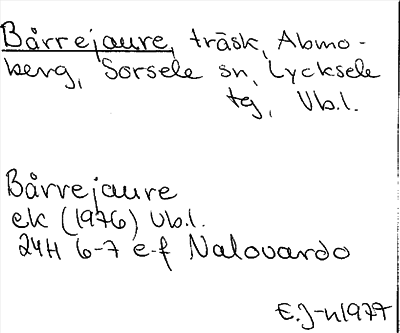 Bårrejaure, träsk, Abmo-
berg, Sorsele sn, Lycksele
tg, Vb.l.
Bårrejaure
ek (1976) Vb.l.
24H 6-7 e-f Nalovardo
E.J-n1977